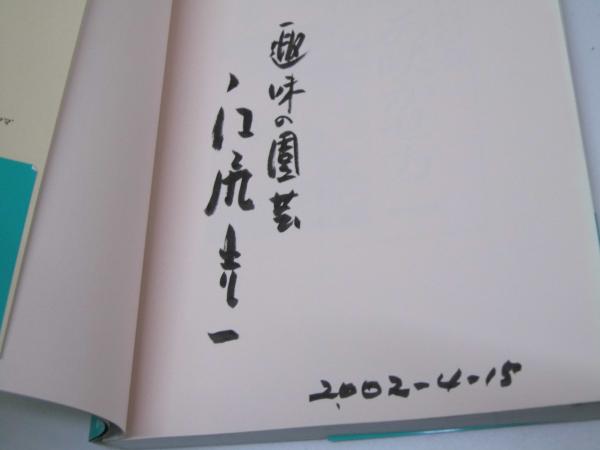 趣味の園芸
江尻光一
2002-4-18